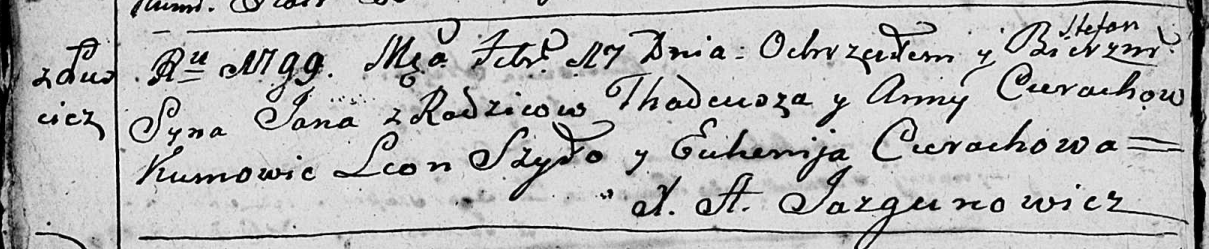 Stefan
zduo Ru 1799. Mca Febr 17 Dnia: Ochrzciłem y Bierzm:
cicz Syna Jana z Rodzicow Thadeusza y Anny Curachow
Kumowie Leon Szydło y Euhenija Curachowa =
X. A. Jazgunowicz